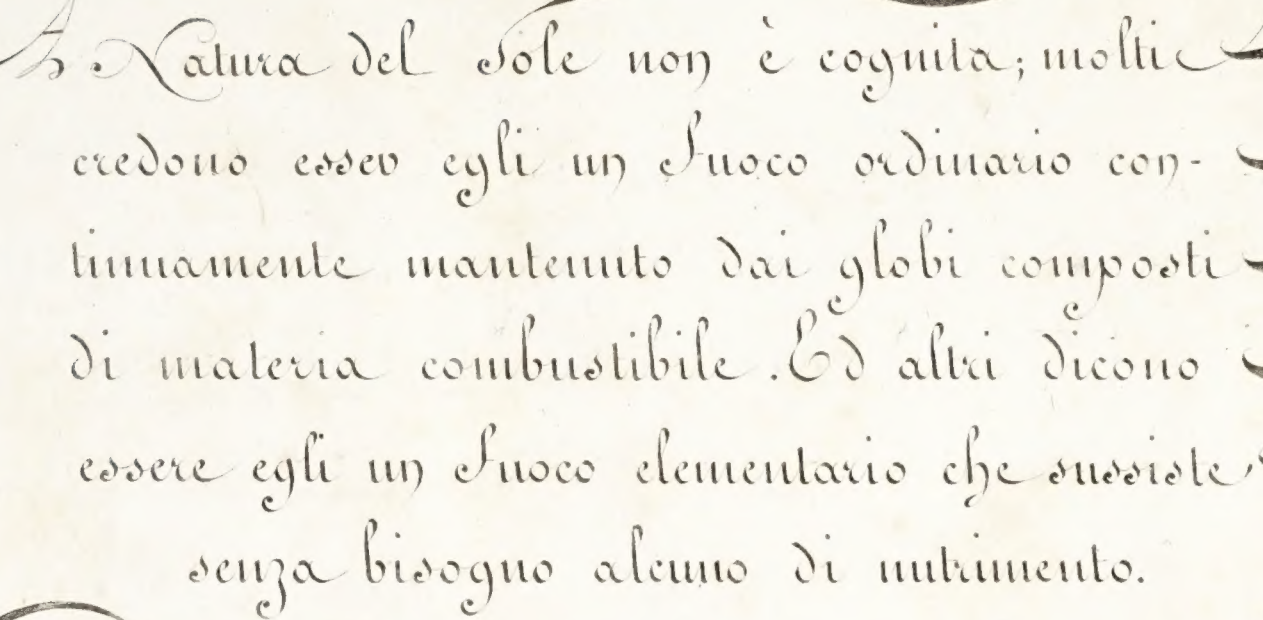 Natura del Sole non è cognita; molti
credono esser egli un Fuoco ordinario con-
tinuamente mantenuto dai globi composti
di materia combustibile. Ed altri dicono
essere egli un Fuoco elementario che sussiste
senza bisogno alcuno di nutrimento.